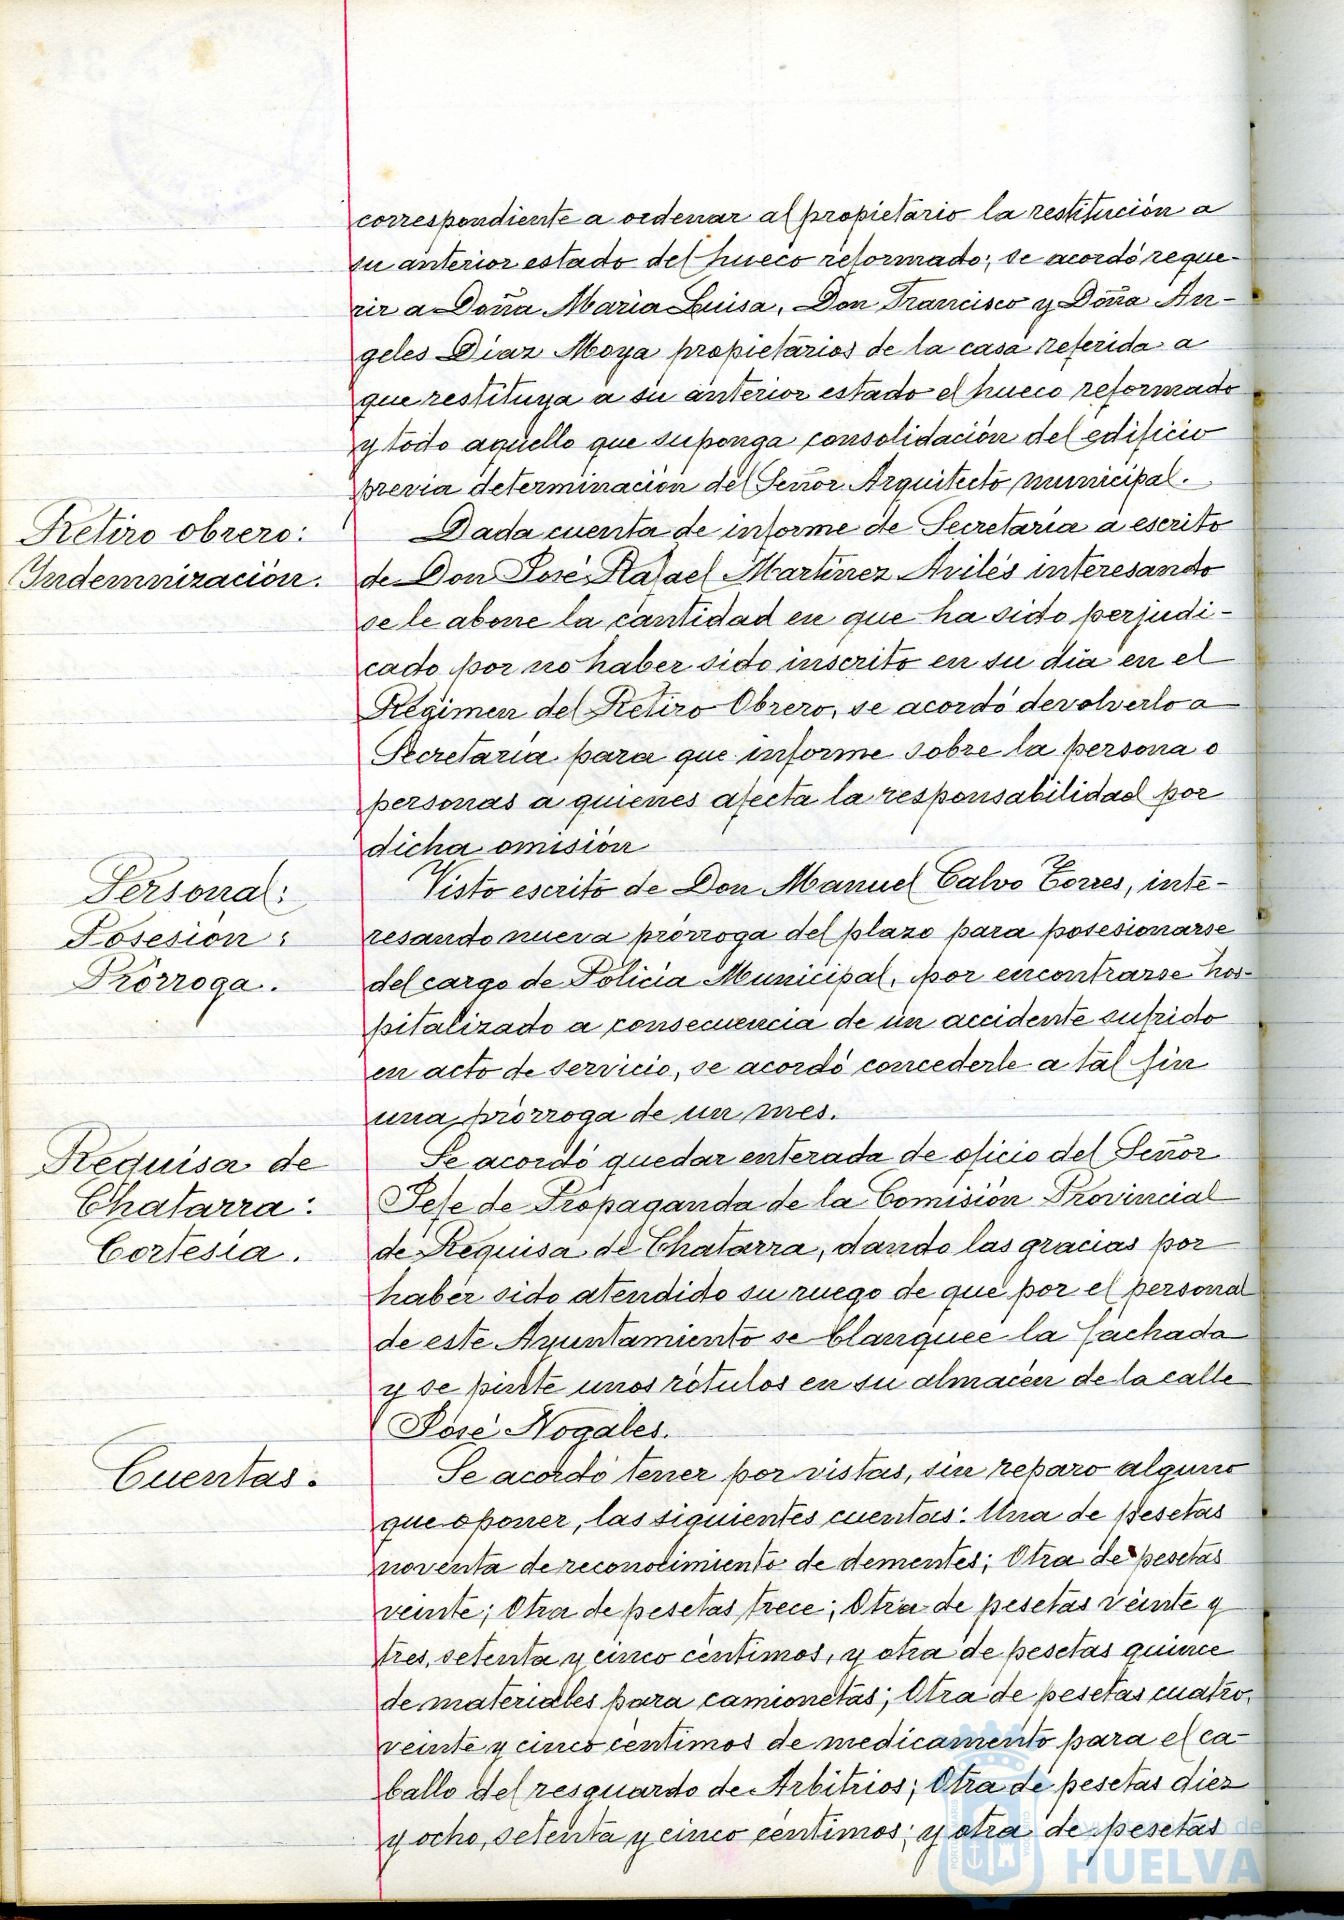 correspondiente a ordenar al propietario la restitución a
su anterior estado del hueco reformado; se acordó reque-
rir a Doña María Luisa, Don Francisco y Doña An-
geles Díaz Moya propietarios de la casa referida a
que restituya a su anterior estado el hueco reformado
y todo aquello que suponga consolidación del edificio
previa determinación del Señor Arquitecto municipal.
Retiro obrero:
Indemnización.
Dada cuenta de informe de Secretaría a escrito
de Don José Rafael Martínez Avilés interesando
se le abone la cantidad en que ha sido perjudi-
cado por no haber sido inscrito en su día en el
Régimen del Retiro Obrero, se acordó devolverlo a
Secretaría para que informe sobre la persona o
personas a quienes afecta la responsabilidad por
dicha omisión
Personal:
Posesión:
Prórroga.
Visto escrito de Don Manuel Calvo Torres, inte-
resando nueva prórroga del plazo para posesionarse
del cargo de Policía Municipal, por encontrarse hos-
pitalizado a consecuencia de un accidente sufrido
en acto de servicio, se acordó concederle a tal fin
una prórroga de un mes.
Requisa de
Chatarra:
Cortesía.
Se acordó quedar enterada de oficio del Señor
Jefe de Propaganda de la Comisión Provincial
de Requisa de Chatarra, dando las gracias por
haber sido atendido su ruego de que por el personal
de este Ayuntamiento se blanquee la fachada
y se pinte unos rótulos en su almacén de la calle
José Nogales.
Cuentas.
Se acordó tener por vistas, sin reparo alguno
que oponer, las siguientes cuentas: Una de pesetas
noventa de reconocimiento de dementes; Otra de pesetas
veinte; Otra de pesetas trece; Otra de pesetas veinte y
tres, setenta y cinco céntimos, y otra de pesetas quince
de materiales para camionetas; Otra de pesetas cuatro,
veinte y cinco céntimos de medicamento para el ca-
ballo del resguardo de Arbitrios; Otra de pesetas diez
y ocho, setenta y cinco céntimos; y otra de pesetas
HUELVA